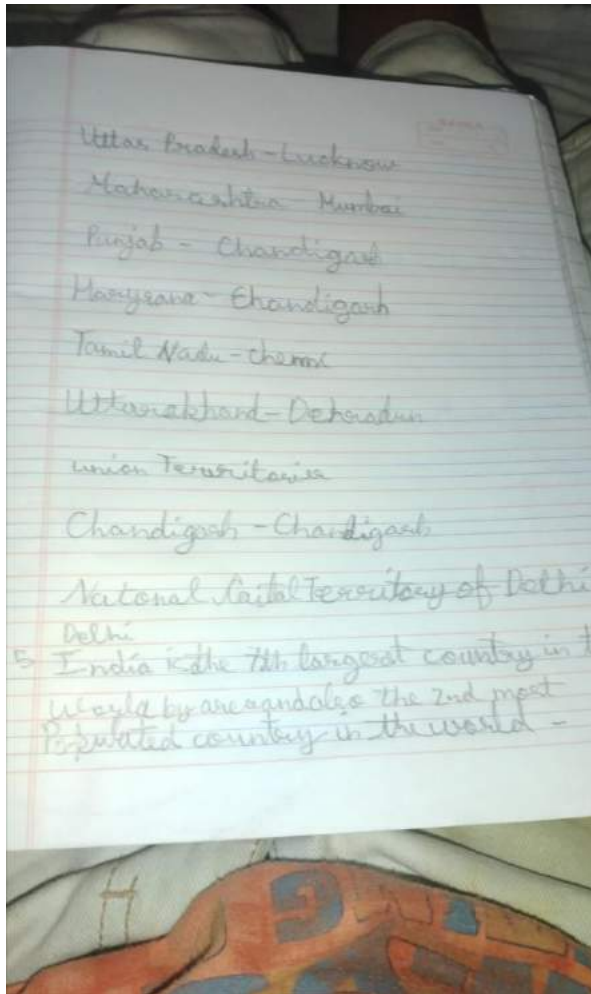 Uttar Pradesh - Lucknow
Maharashtra - Mumbai
Punjab - Chandigarh
Haryana - Chandigarh
Tamil Nadu - Chenni
Uttarakhand - Dehradun
union Territories
Chandigarh - Chandigarh
Natonal Caital Territory of Delhi
Delhi
5 India is the 7th largest country in t
World by area and also the 2nd most
Populated country in the world -